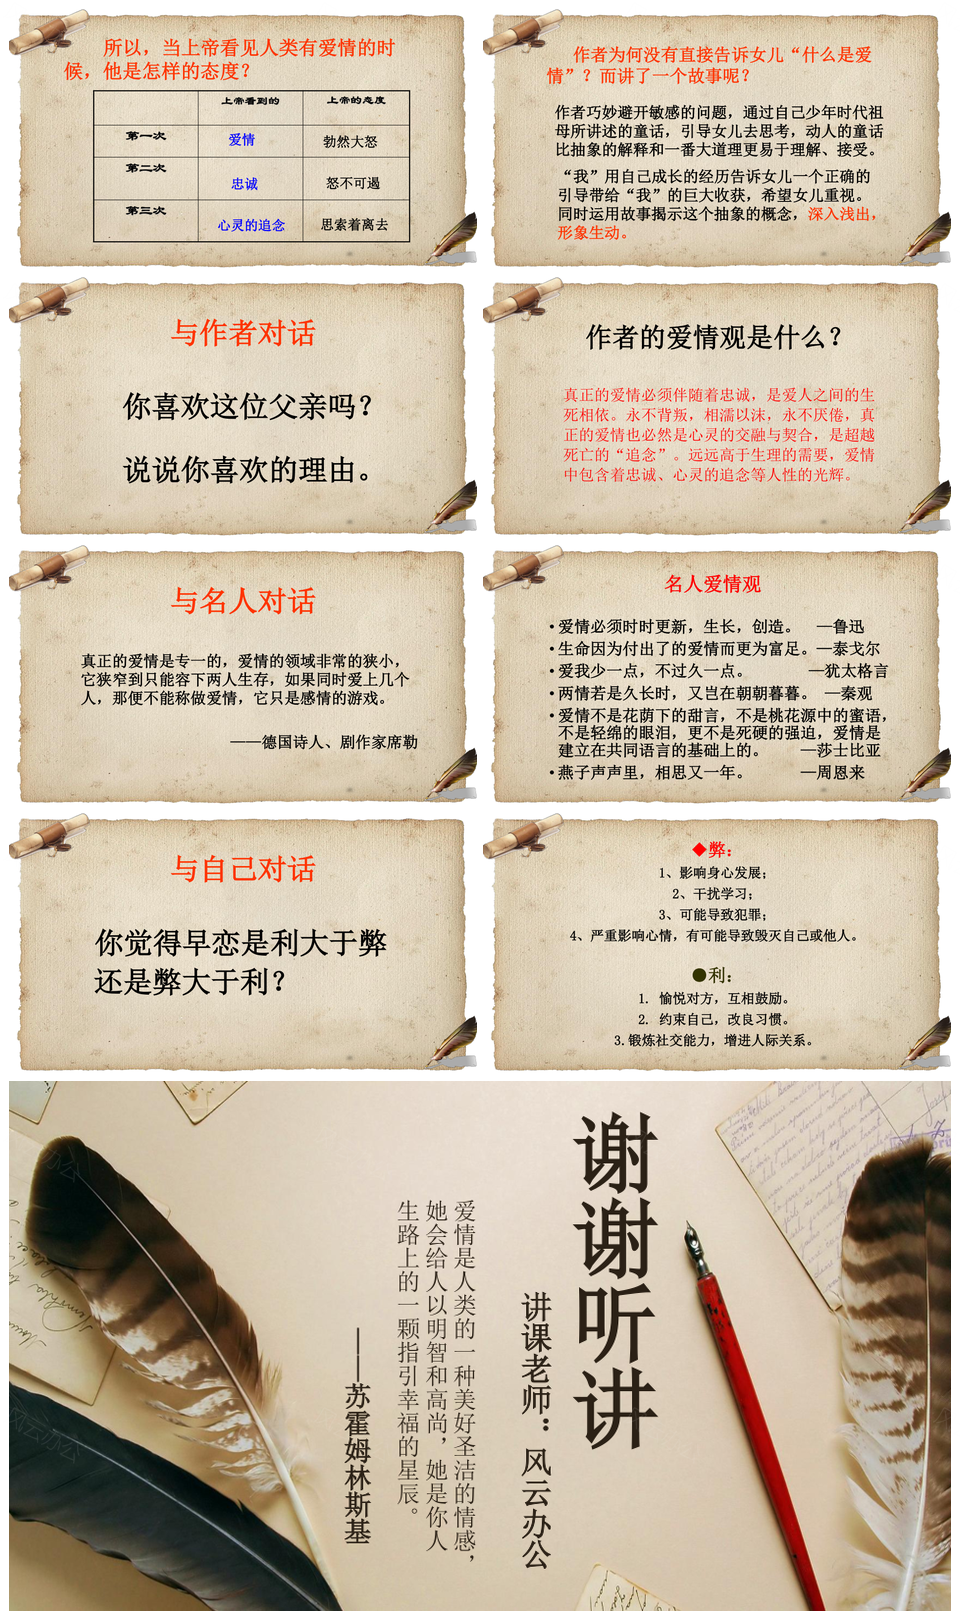 所以，当上帝看见人类有爱情的时
候，他是怎样的态度？
上帝看到的 上帝的态度
第一次 爱情 勃然大怒
第二次 忠诚 怒不可遏
第三次 心灵的追念 思索着离去
作者为何没有直接告诉女儿“什么是爱
情”？而讲了一个故事呢？
作者巧妙避开敏感的问题，通过自己少年时代祖
母所讲述的童话，引导女儿去思考，动人的童话
比抽象的解释和一番大道理更易于理解、接受。
“我”用自己成长的经历告诉女儿一个正确的
引导带给“我”的巨大收获，希望女儿重视。
同时运用故事揭示这个抽象的概念，深入浅出，
形象生动。
与作者对话
你喜欢这位父亲吗？
说说你喜欢的理由。
作者的爱情观是什么？
真正的爱情必须伴随着忠诚，是爱人之间的生
死相依。永不背叛，相濡以沫，永不厌倦，真
正的爱情也必然是心灵的交融与契合，是超越
死亡的“追念”。远远高于生理的需要，爱情
中包含着忠诚、心灵的追念等人性的光辉。
与名人对话
真正的爱情是专一的，爱情的领域非常的狭小，
它狭窄到只能容下两人生存，如果同时爱上几个
人，那便不能称做爱情，它只是感情的游戏。
——德国诗人、剧作家席勒
名人爱情观
•爱情必须时时更新，生长，创造。 —鲁迅
•生命因为付出了的爱情而更为富足。—泰戈尔
•爱我少一点，不过久一点。 —犹太格言
•两情若是久长时，又岂在朝朝暮暮。 —秦观
•爱情不是花荫下的甜言，不是桃花源中的蜜语，
不是轻绵的眼泪，更不是死硬的强迫，爱情是
建立在共同语言的基础上的。 —莎士比亚
•燕子声声里，相思又一年。 —周恩来
与自己对话
你觉得早恋是利大于弊
还是弊大于利？
◆弊：
1、影响身心发展；
2、干扰学习；
3、可能导致犯罪；
4、严重影响心情，有可能导致毁灭自己或他人。
●利：
1. 愉悦对方，互相鼓励。
2. 约束自己，改良习惯。
3.锻炼社交能力，增进人际关系。
谢谢听讲
讲课老师：风云办公
爱情是人类的一种美好圣洁的情感，
她会给人以明智和高尚，她是你人
生路上的一颗指引幸福的星辰。
——苏霍姆林斯基